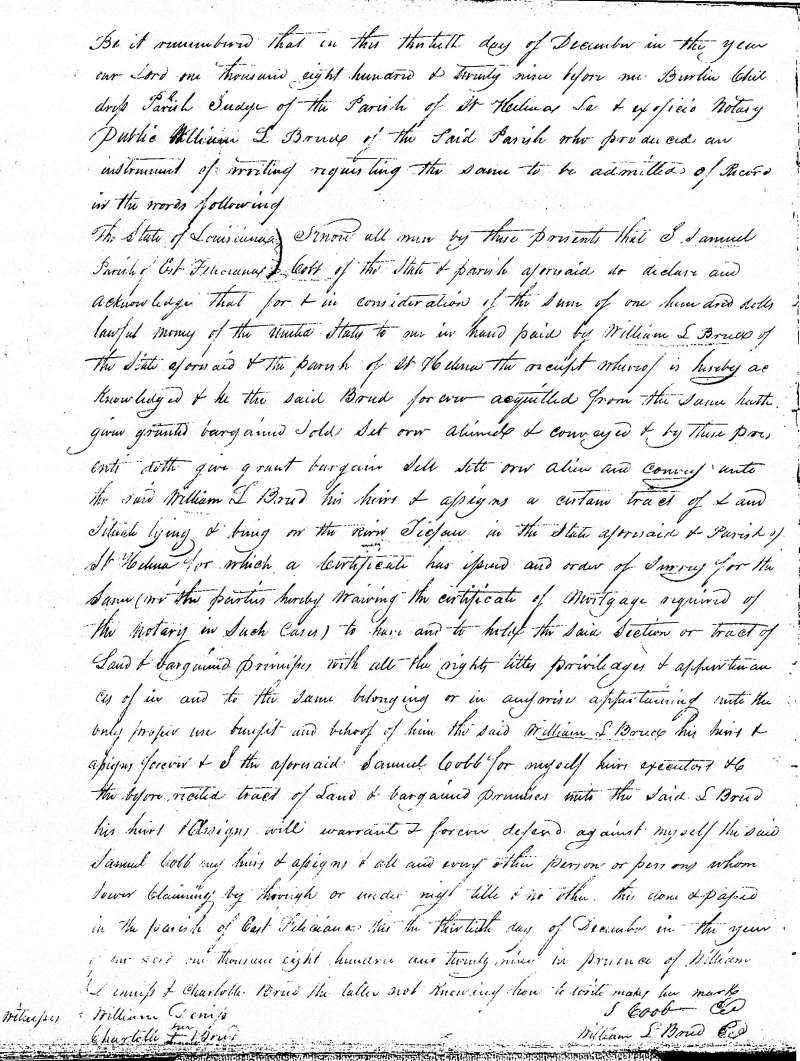 Be it remembered that on this thirtieth day of December in the year
our Lord one thousand eight hundred & twenty nine before me Burlin Chil
dress Parish Judge of the Parish of St Helena La & exoficio Notary
Public William L Breed of the Said Parish who produced an
instrument of writing requesting the same to be admitted of Record
in the words following
The State of Louisiana ) Know all men by these presents that I Samuel
Parish of Est Feliciana ) Cobb of the State & parish aforesaid do declare and
acknowledge that for & in consideration of the sum of one hundred dolls
lawful money of the United States to me in hand paid by William L Breed of
the State aforesaid & the parish of St Helena the receipt whereof is hereby ac
knowledged & he the said Breed forever acquitted from the same hath
given granted bargained sold set over aliened & conveyed & by these pres
ents doth give grant bargain sell sett over alien and convey unto
the said William L Breed his heirs & assigns a certain tract of Land
Situate lying & being on the river Ticfaw in the State aforesaid & Parish of
St Helena for which a Certificate has issued and order of Survey for the
Same (we the parties hereby waiving the certificate of Mortgage required of
the Notary in Such Cases) to have and to hold the said Section or tract of
Land & bargained premises with all the rights titles priviledges & appurtenan
ces of in and to the same belonging or in anywise appertaining unto the
only proper use benefit and behoof of him the said William L Breed his heirs &
assigns forever & I the aforesaid Samuel Cobb for myself heirs executors &c
the before recited tract of Land & bargained premises unto the said L Breed
his heirs & Assigns will warrant & forever defend against myself the said
Samuel Cobb my heirs & assigns & all and every other person or persons whom
soever Claiming by through or under my title & no other. this done & passed
in the parish of East Feliciana this the thirtieth day of December in the year
of our Lord one thousand eight hundred and twenty nine in presence of William
Dennis & Charlotte Breed the latter not knowing how to write makes her mark
Witnesses William Dennis S Cobb
Charlotte her mark Breed William L Breed